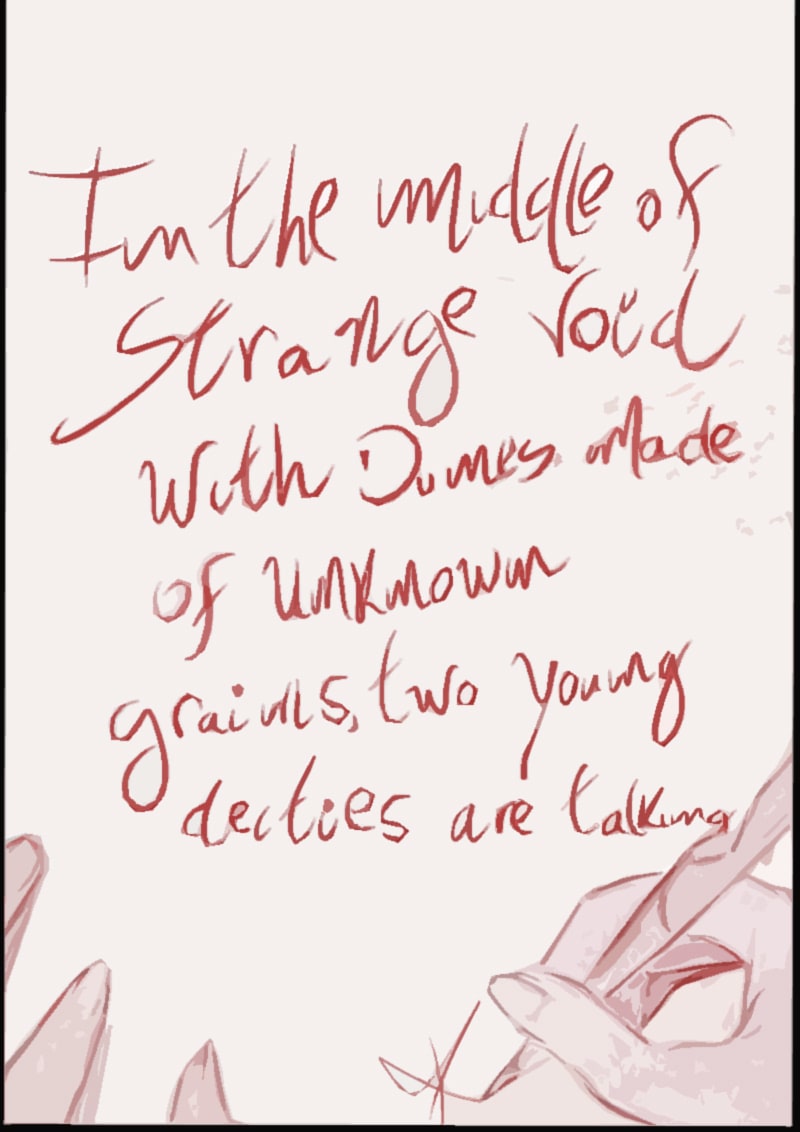 In the middle of
Strange void
With Dunes made
of unknown
grains, two young
decties are talking